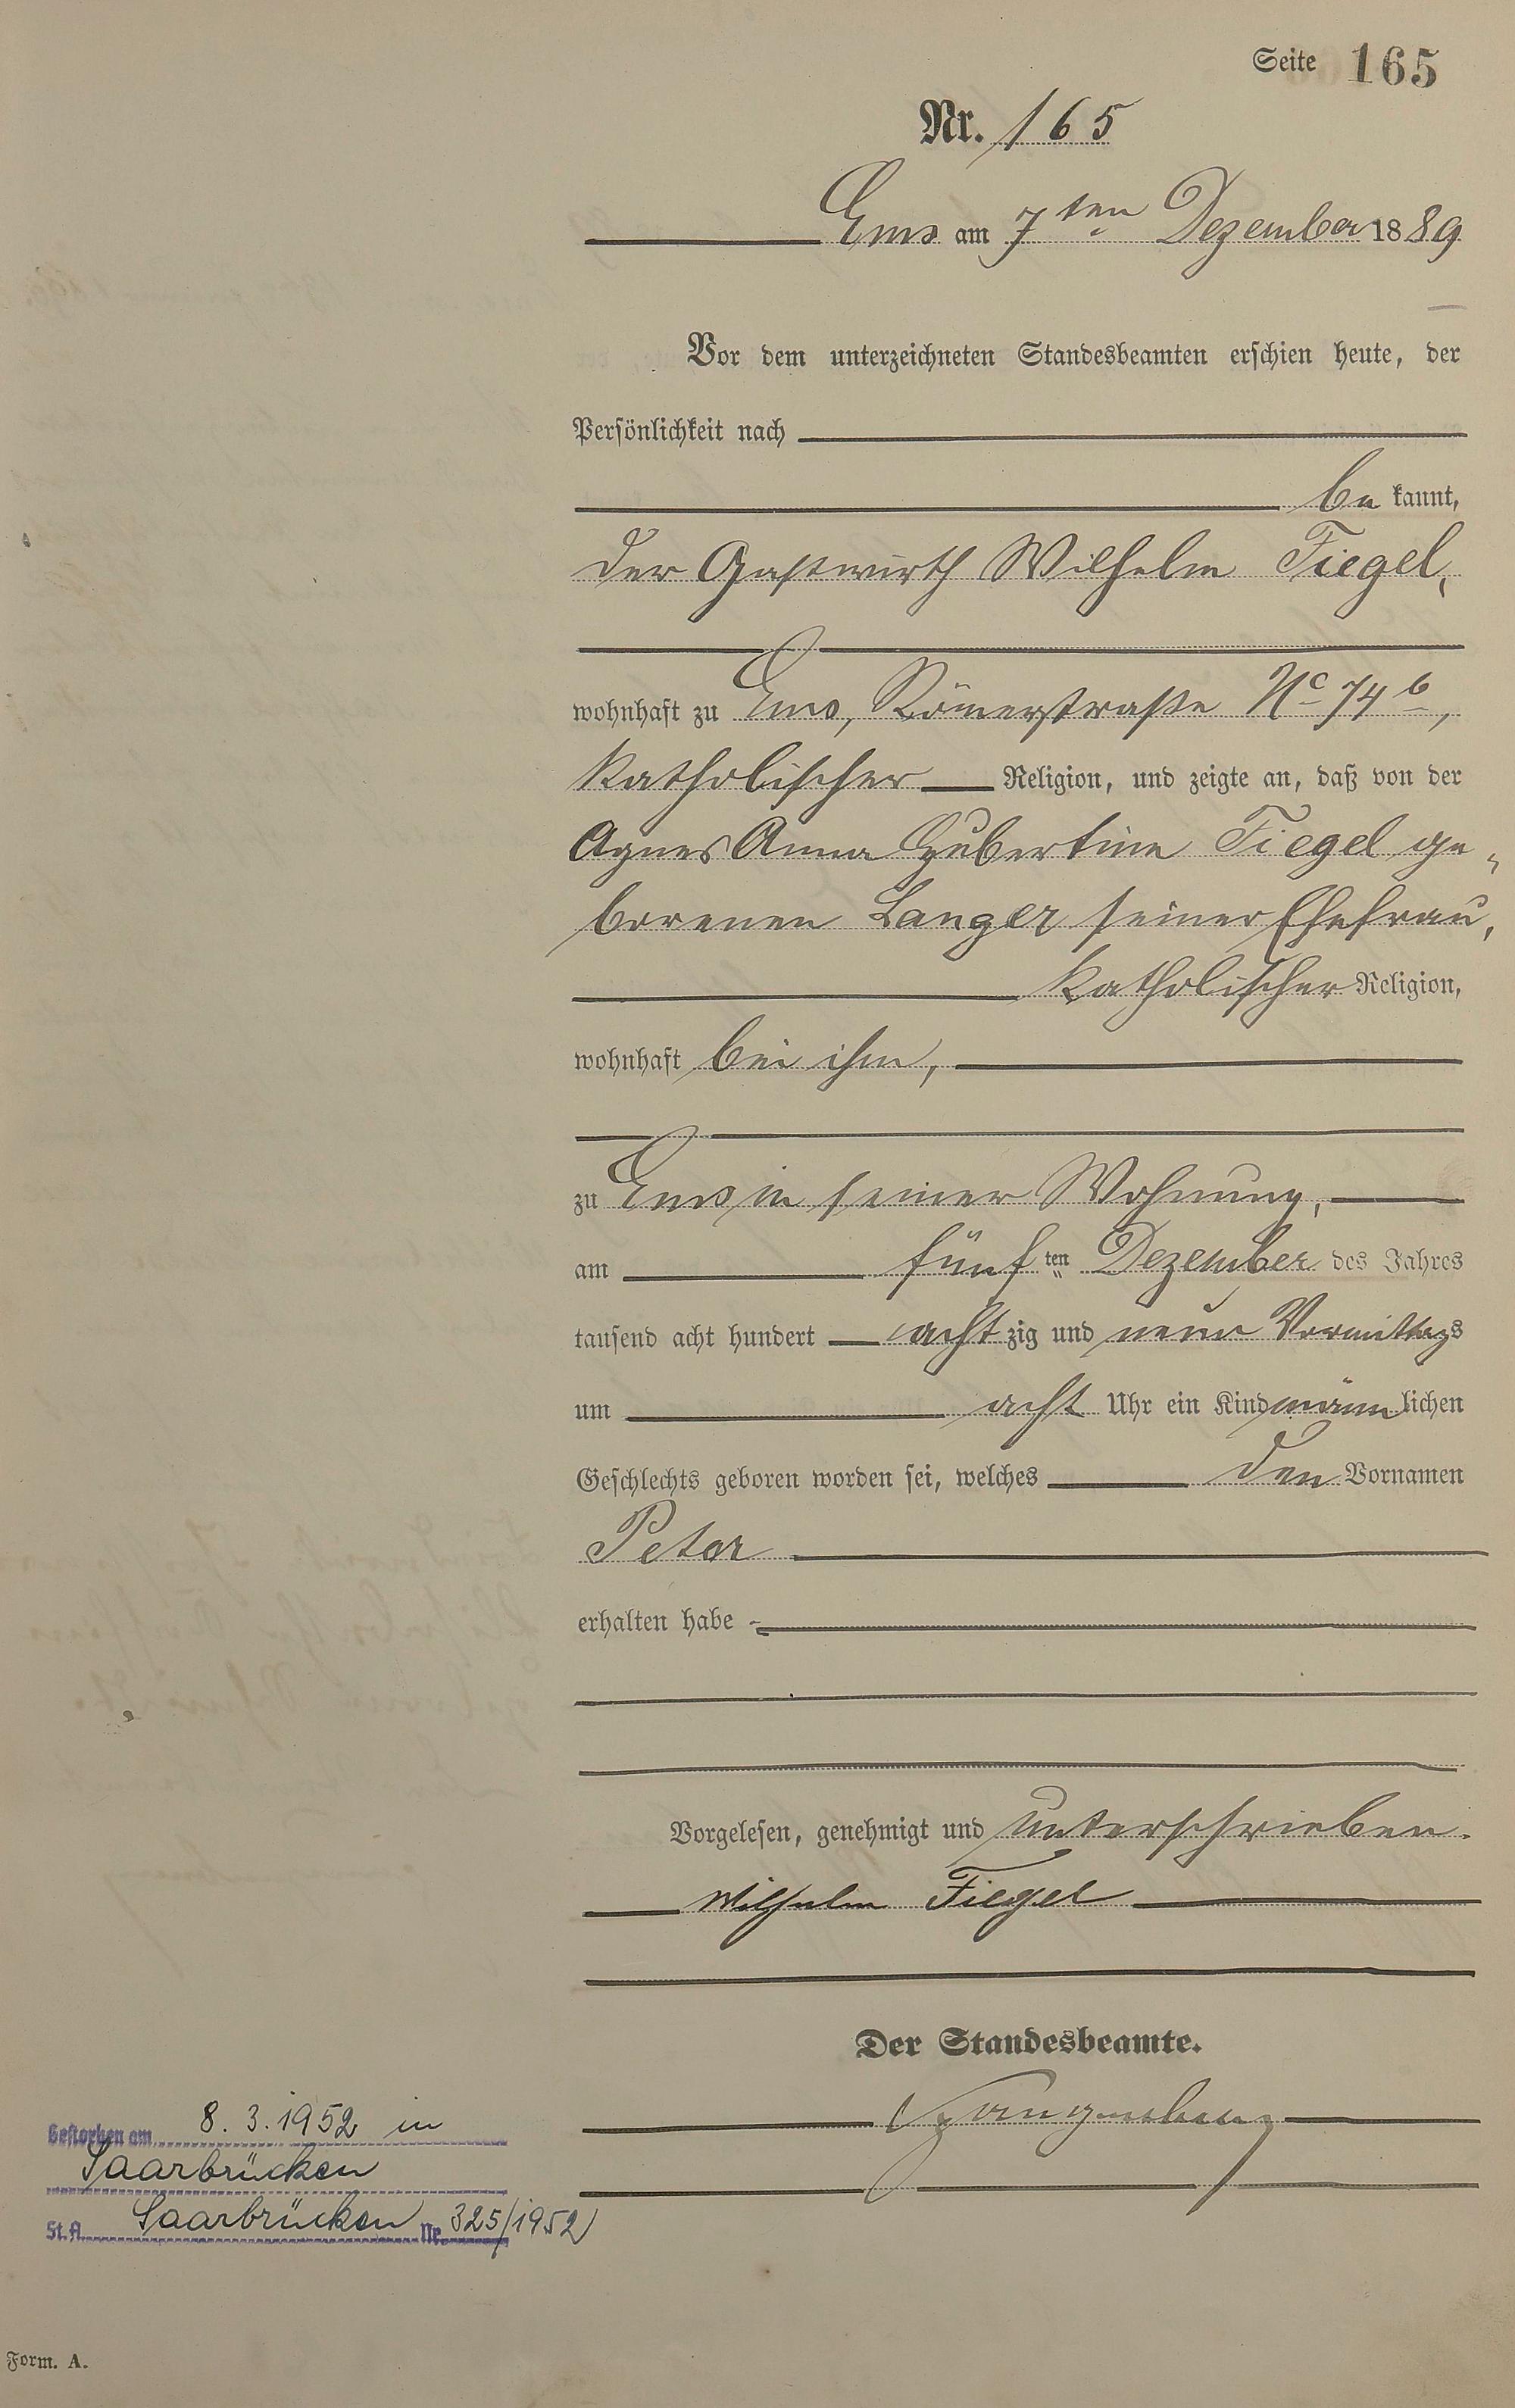 Seite 165
Nr. 165
Ems am 7ten Dezember 1889
Vor dem unterzeichneten Standesbeamten erschien heute, der
Persönlichkeit nach
be kannt,
der Gastwirth Wilhelm Fiegel,
wohnhaft zu Ems, Römerstraße No 74b,
katholischer Religion, und zeigte an, daß von der
Agnes Anna Hubertine Fiegel ge-
borenen Langer seiner Ehefrau,
katholischer Religion,
wohnhaft bei ihm,
zu Ems in seiner Wohnung,
am fünf ten Dezember des Jahres
tausend acht hundert acht zig und neun Vormittags
um acht Uhr ein Kind männ lichen
Geschlechts geboren worden sei, welches den Vornamen
Peter
erhalten habe
Vorgelesen, genehmigt und unterschrieben.
Wilhelm Fiegel
Der Standesbeamte.
Gestorben am 8.3.1952 in
Saarbrücken
St.A. Saarbrücken Nr. 325/1952
Form. A.